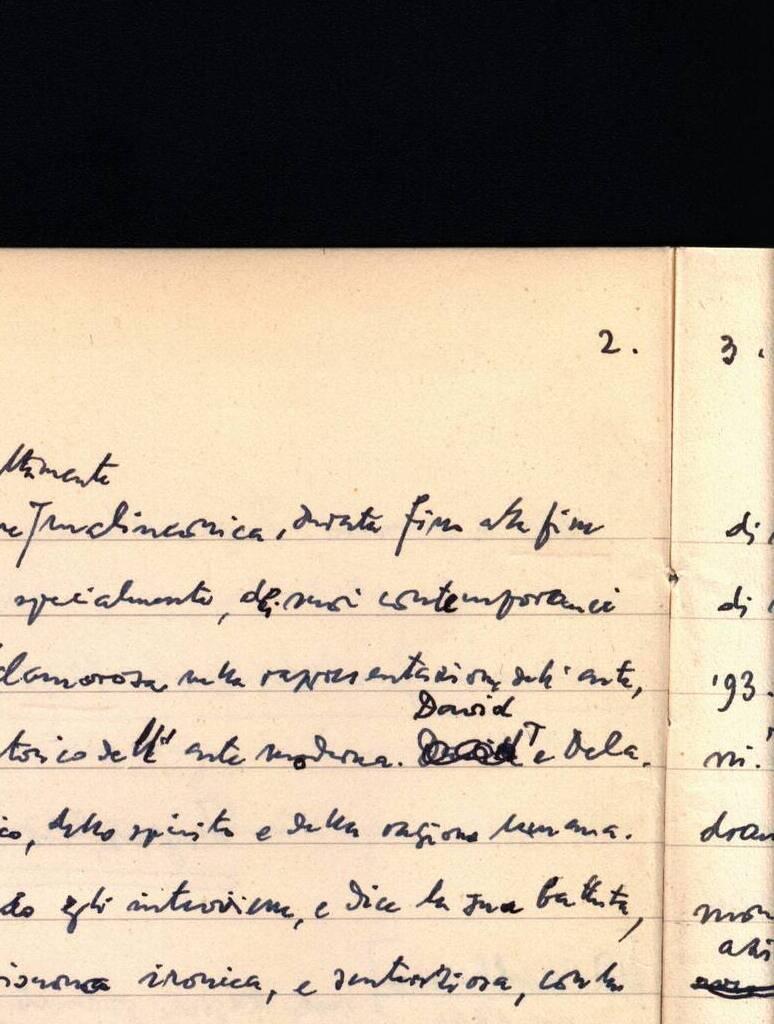 2.
ttamente
malinconica, durata fino alla fine
specialmente, dei suoi contemporanei
clamorosa nella rappresentazione dell'arte,
David
torico dell'arte moderna. e Dela.
co, dello spirito e della ragione umana.
do egli interviene, e dice la sua battuta,
ironica, e sentenziosa, con la
3.
di
di
'93.
ni.
dram
mon